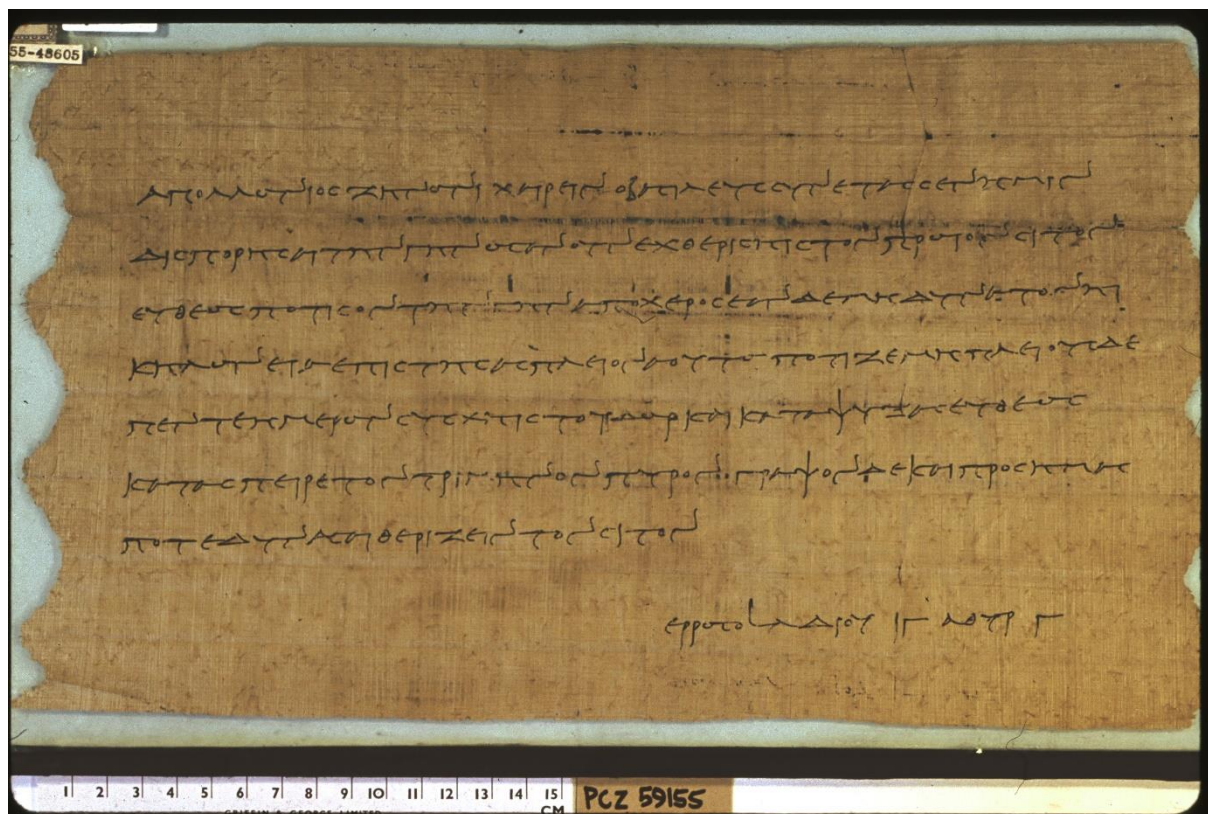 55-48605
απολλωνιος ζηνωνι χαιρειν ο βασιλευς συνετασσεν ημιν
δισπορησαι την γην ως αν ουν εχθερισηις τον πρωιον σιτον
ευθεως ποτισον την γην απο χερος εαν δε μη δυνατον ηι
κηλωνεια επιστησας πλειονα ουτω ποτιζε μη πλειους δε
πεντε ημερων συσχηις το υδωρ και καταψυξας ευθεως
κατασπειρε τον τριμηνον πυρον γραψον δε και προς ημας
ποτε δυνασηι θεριζειν τον σιτον
ερρωσο L λ διου ιγ αθυρ γ
1 2 3 4 5 6 7 8 9 10 11 12 13 14 15
CM
PCZ 59155